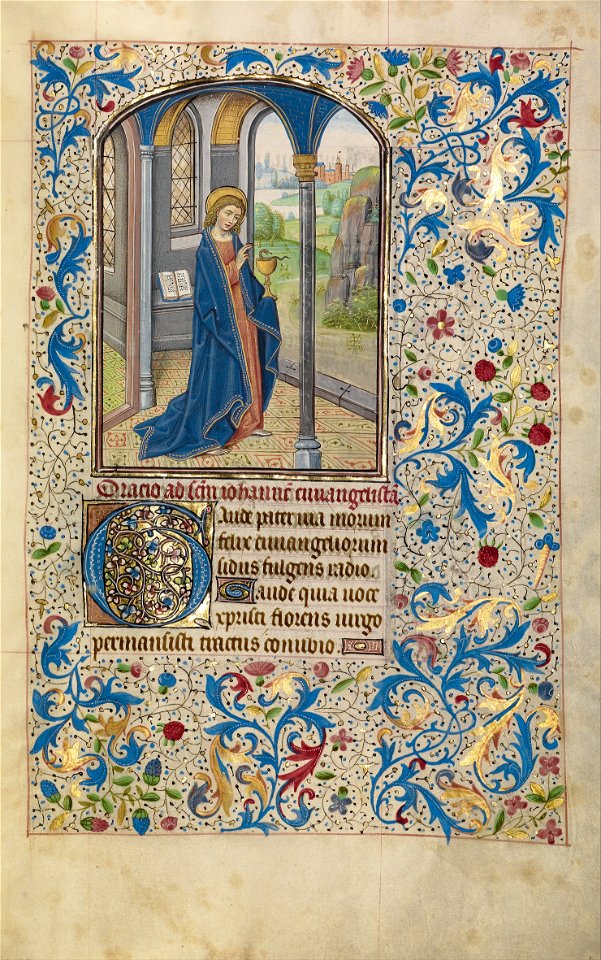 Oracio ad scm̄ iohannē euuangelistā
Gaude pater via morum
felix euuangeliorum
sidus fulgens radio.
Gaude quia uoce
xpristi florens uirgo
permansisti tractus conubio.